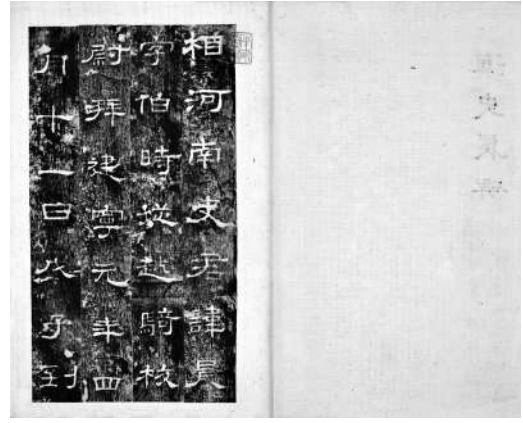 相河南史君諱晨
字伯時從越騎校
尉拜建寧元年四
月十一日戊子到